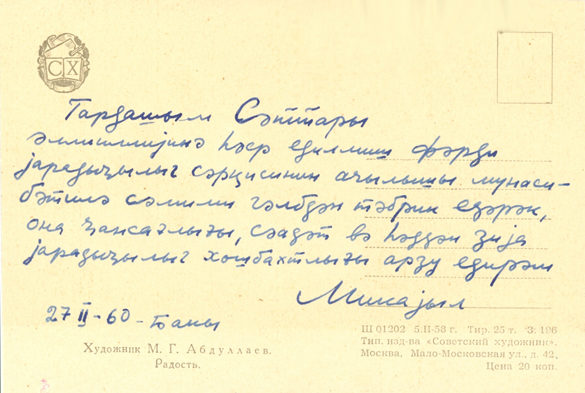 СХ
Гардашым Сәттары
әллииллијинә һәср едилмиш фәрди
јарадыҹылыг сәрҝисинин ачылышы мунаси-
бәтилә сәмими гәлбдән тәбрик едәрәк,
она ҹансағлығы, сәадәт вә һәддән зија
јарадыҹылыг хошбахтлығы арзу едирәм
Микајыл
27 II-60-Бакы
Художник М. Г. Абдуллаев.
Радость.
Ш 01202 5.II-58 г. Тир. 25 т. З: 196
Тип. изд-ва «Советский художник».
Москва. Мало-Московская ул., д. 42.
Цена 20 коп.